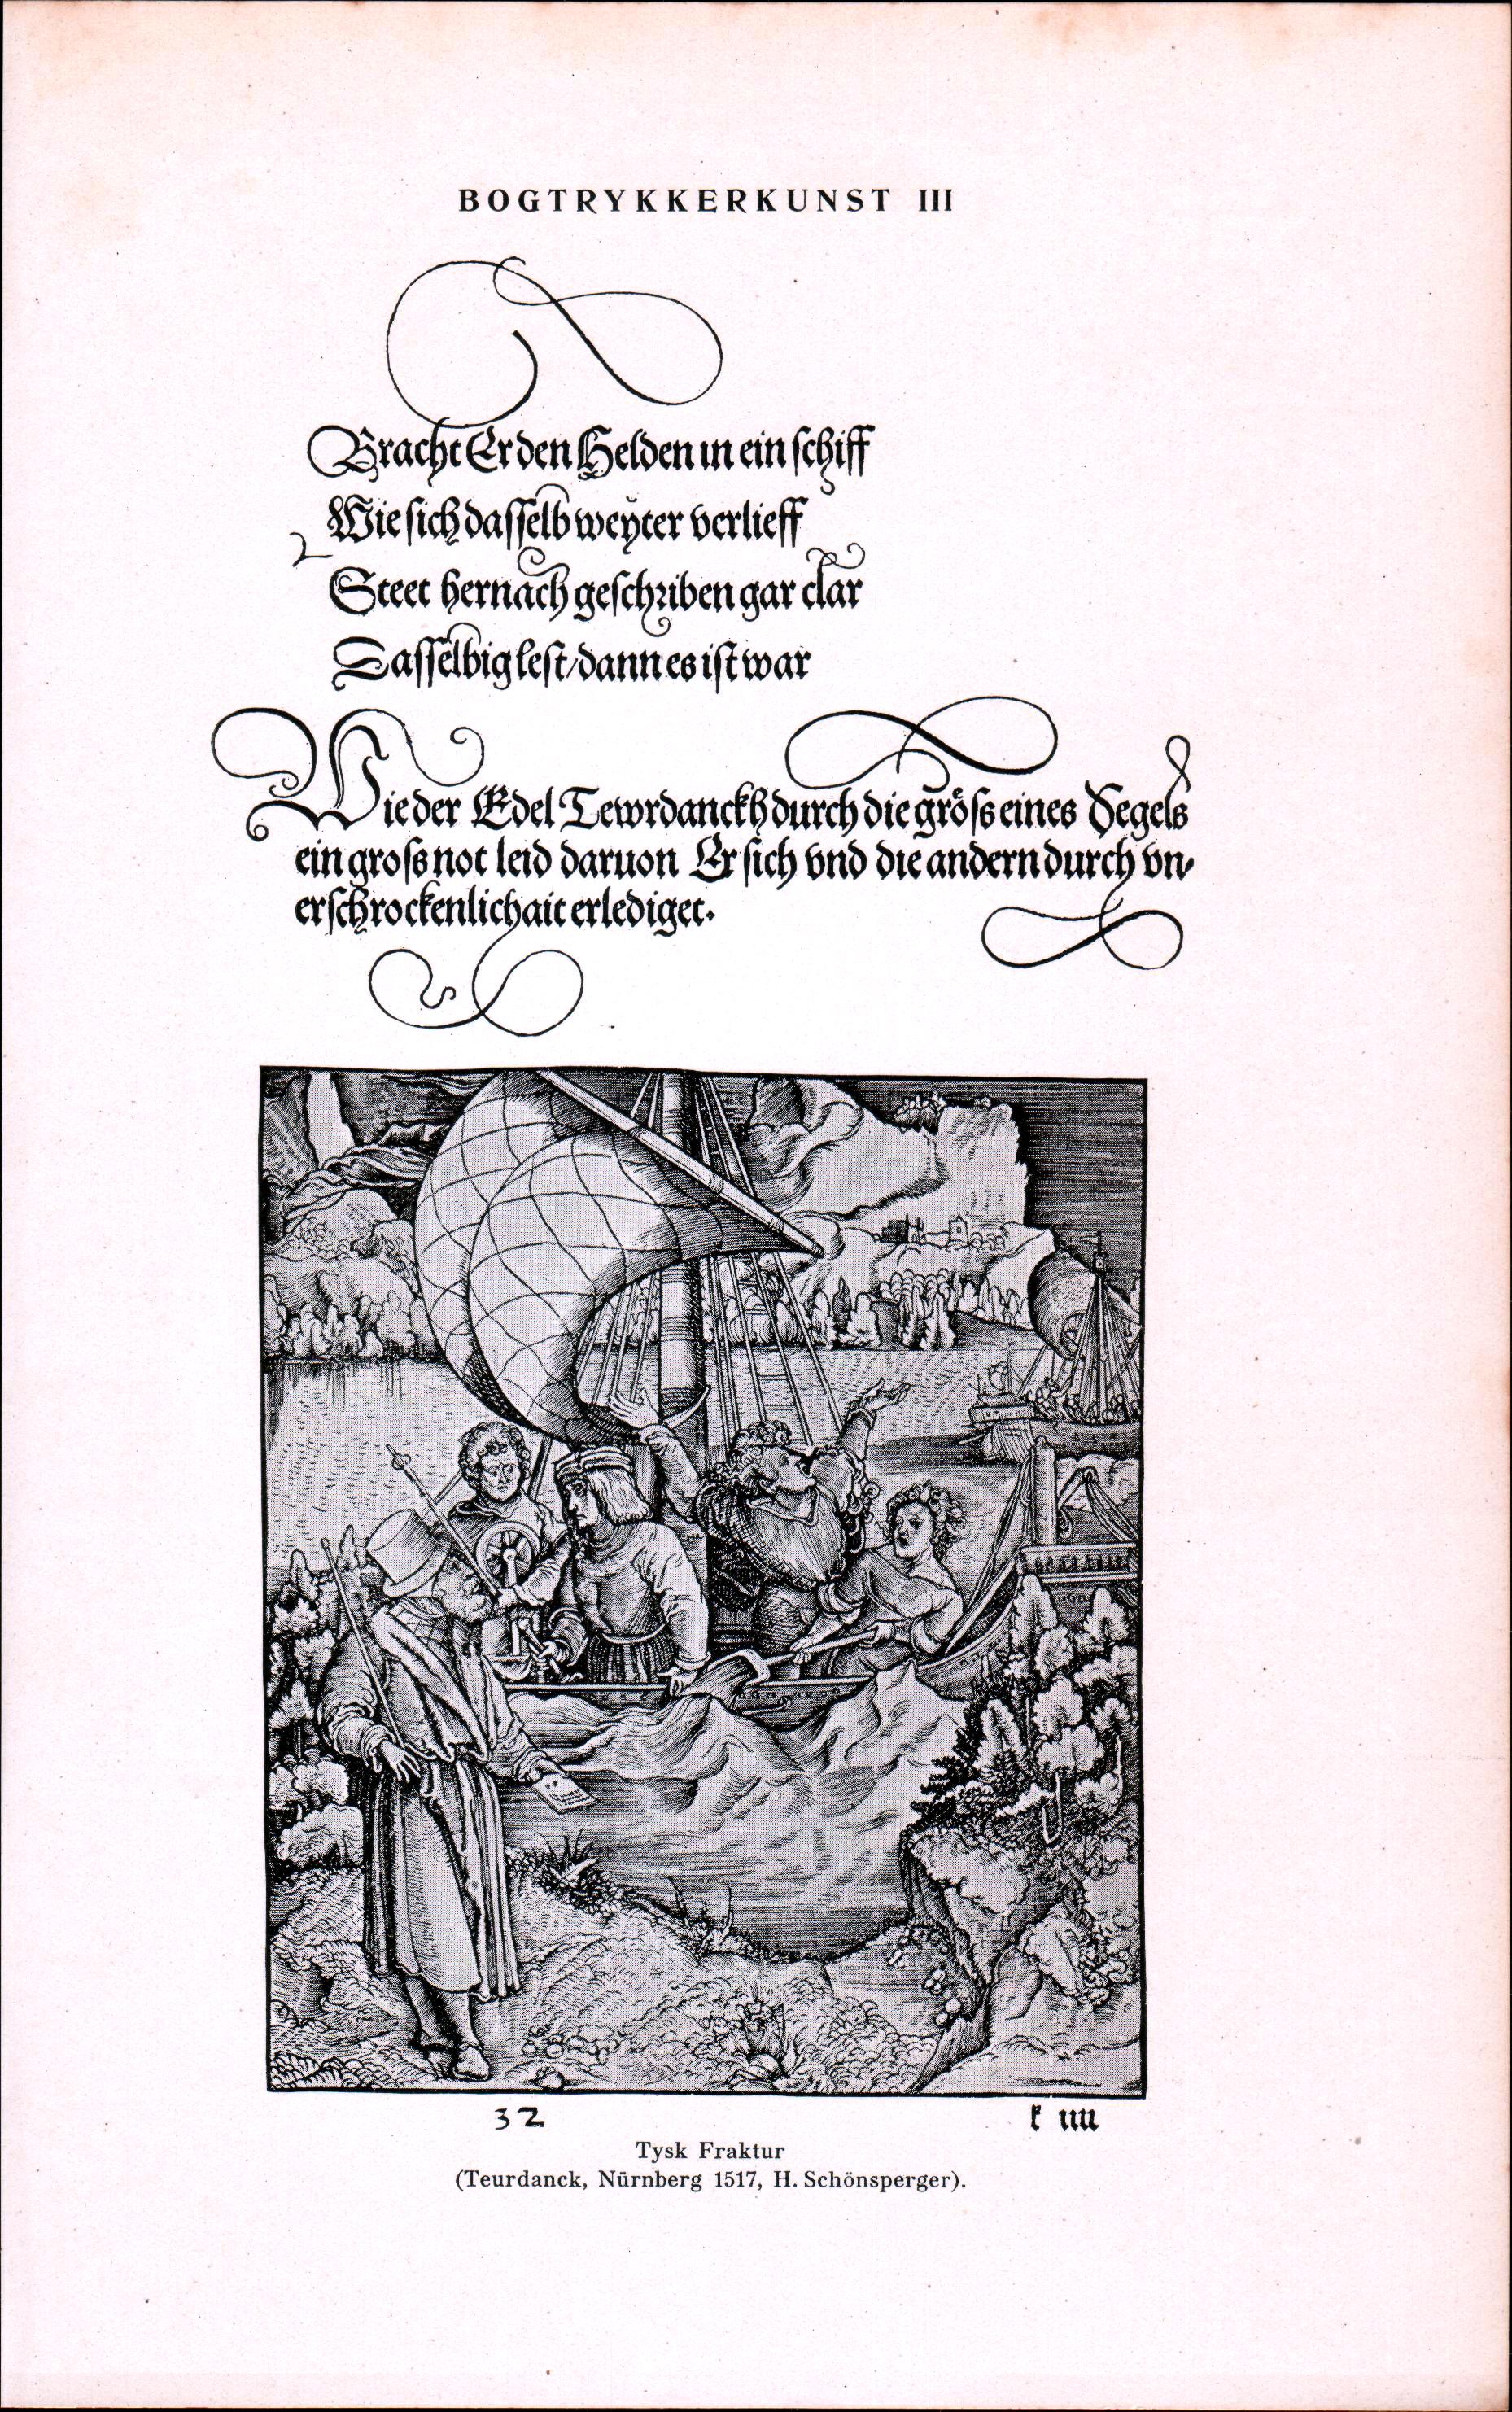 BOGTRYKKERKUNST III
Bracht Er den Helden in ein ſchiff
Wie ſich daſſelb weÿter verlieff
Steet hernach geſchriben gar clar
Daſſelbig leſt/dann es iſt war
Wie der Edel Tewrdanckh durch die gröſs eines Segels
ein groſs not leid daruon Er ſich vnd die andern durch vn-
erſchrockenlichait erlediget.
32 k iiii
Tysk Fraktur
(Teurdanck, Nürnberg 1517, H. Schönsperger).